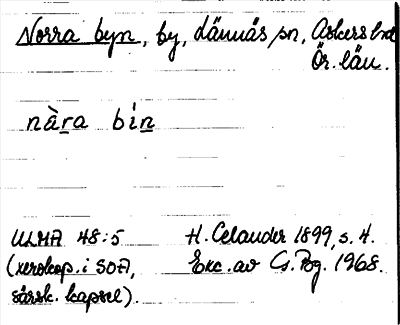 Norra byn, by, Lännäs sn, Askers hd
Ör. län.
nàra bin
ULMA 48:5 H. Celander 1899, s. 4.
(xerokop. i SOA, Exc. av G. Bg. 1968.
särsk. kapsel).